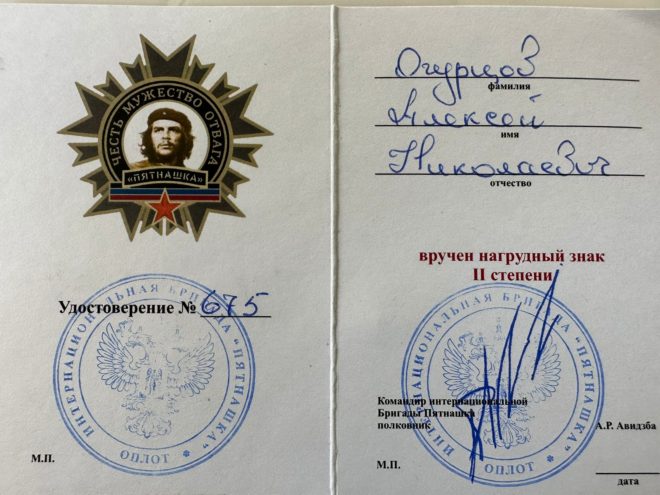 ЧЕСТЬ МУЖЕСТВО ОТВАГА
«ПЯТНАШКА»
Удостоверение № 675
ИНТЕРНАЦИОНАЛЬНАЯ БРИГАДА "ПЯТНАШКА"
ОПЛОТ
М.П.
Огурцов
фамилия
Алексей
имя
Николаевич
отчество
вручен нагрудный знак
II степени
ИНТЕРНАЦИОНАЛЬНАЯ БРИГАДА "ПЯТНАШКА"
ОПЛОТ
Командир интернациональной
Бригады Пятнашка
полковник А.Р. Авидзба
М.П.
дата